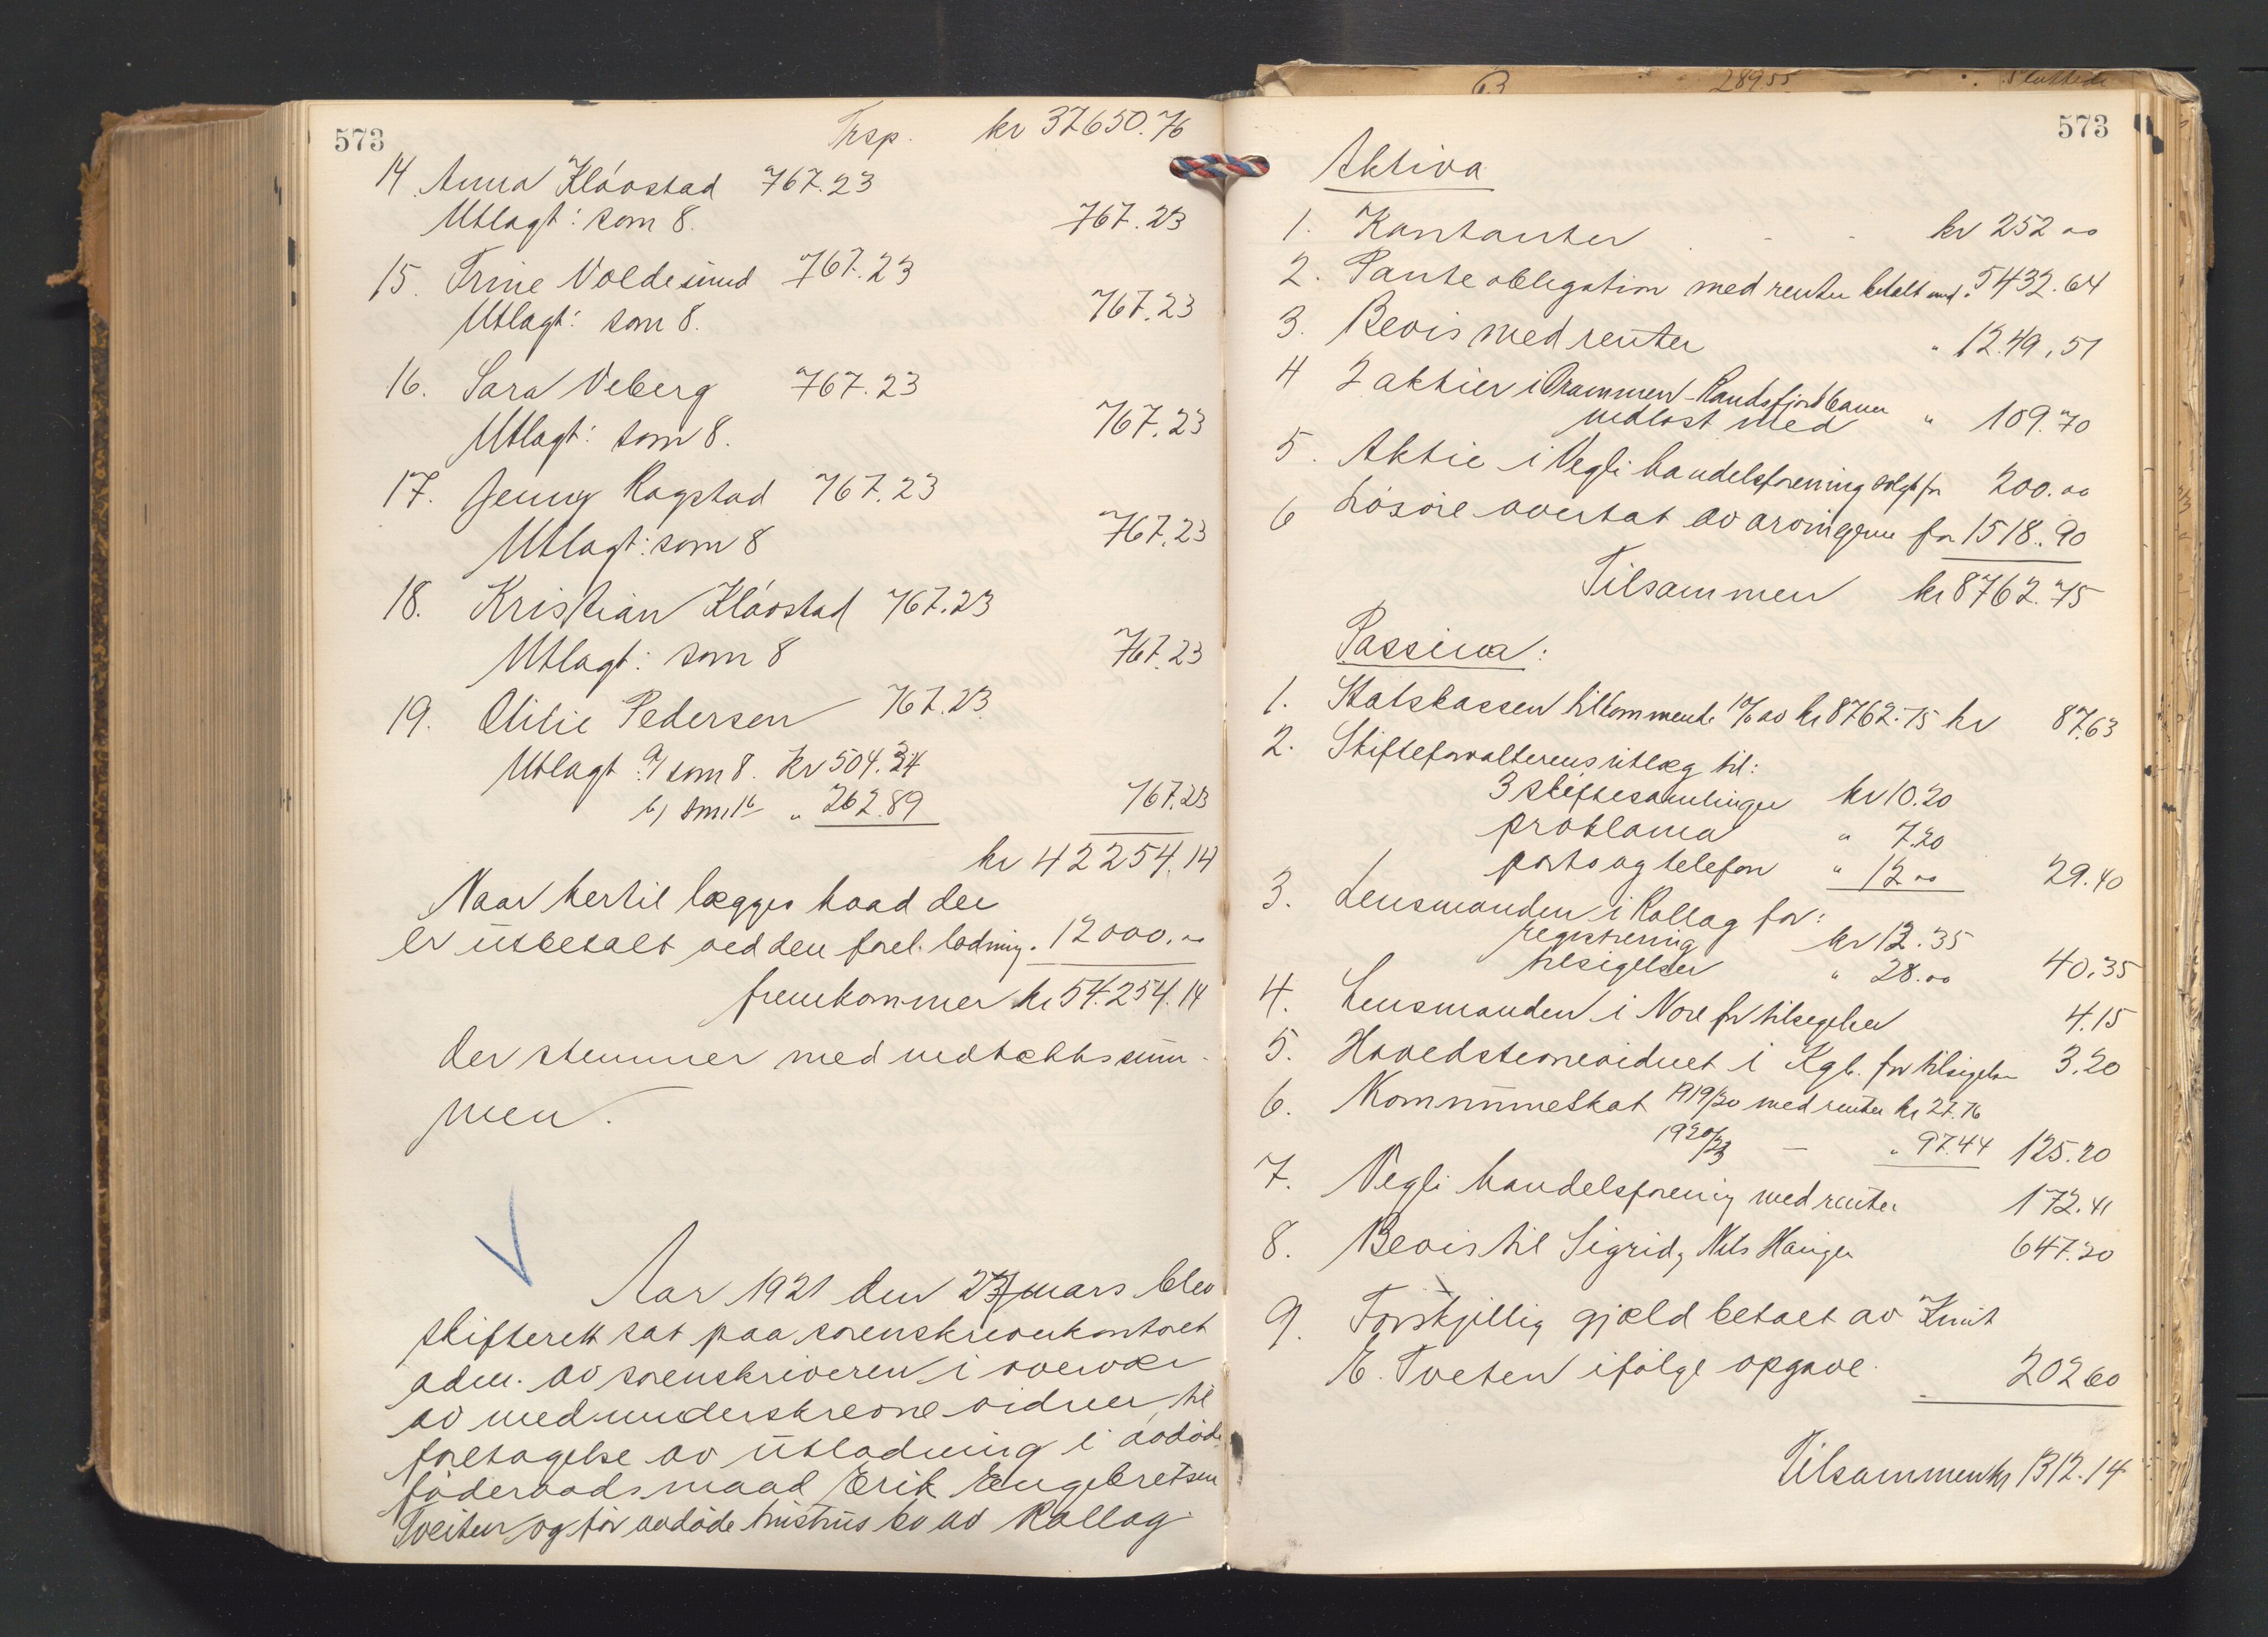 573
Trsp. kr 37650.76
14 Anna Kláostad 767.23
Utlagt: som 8. 767.23
15. Trine Voldesund 767.23
Utlagt: som 8. 767.23
16. Sara Veberg 767.23
Utlagt: som 8. 767.23
17. Jenny Rogstad 767.23
Utlagt: som 8 767.23
18. Kristian Kláostad 767.23
Utlagt: som 8 767.23
19. Otilie Pedersen 767.23
Utlagt a/ som 8. Kr 504.34
b) som 16 " 262.89 767.23
kr 42254.14
Naar hertil lægges hvad der
er utbetalt ved den forel. lodning. 12000.00
fremkommer kr 54.254.14
der stemmer med indtækts sum-
men.
Aar 1921 den 23/ mars blev
skifterett sat paa sorenskriverkontoret
adm. av sorenskriveren i overvær
av medunderskrevne vidner, til
foretagelse av utlodning i avdöde
föderaadsmaad Erik Engebretsen
Tveiten og för avdöde hustrus bo av Rollag
289.55
573
Aktiva
1. Kontanter kr 252 00
2. Panteobligation med renter betalt med " 5432.64
3. Bevis med renter " 1249,51
4 2 aktier i Drammen-Randsfjordbanen
indlöst med " 109.70
5. Aktie i Vegli handelsforening solgt for 200.00
6 Lösöre overtat av arvingerne for 1518.90
Tilsammen kr 8762.75
Passiva:
1. Statskassen tilkommende 1% av kr 8762.75 kr 87.63
2. Skifteforvalterens utlæg til:
3 skiftesamlinger kr 10.20
proklama " 7.20
porto og telefon " 12 00 29.40
3. Lensmanden i Rollag for:
registrering kr 12.35
tilsigelser " 28.00 40.35
4. Lensmanden i Nore for tilsigelser 4.15
5. Hovedstevnevidnet i Kgb. for tilsigelse 3.20
6. Kommuneskat 1919/20 med renter kr 27.76
1920/23 — " 97.44 125.20
7. Vegli handelsforening med renter 172.41
8. Bevis til Sigrid, Nils 647.20
9. Forskjellig gjæld betalt av Knut
E. Tveten ifölge opgave. 202 60
Tilsammen kr 1312.14